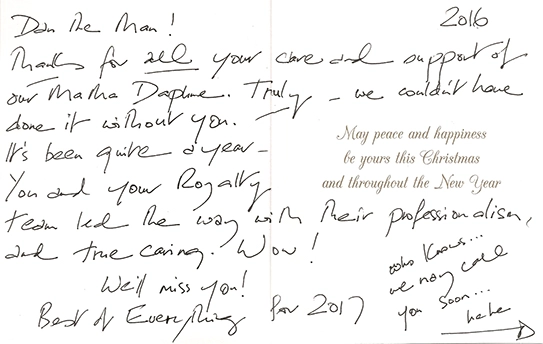 2016
Dan the Man!
Thanks for all your care and support of
our Mama Daphne. Truly – we couldn't have
done it without you.
It's been quite a year –
You and your Royalty
team led the way with their professionalism,
and true caring. Wow!
We'll miss you!
Best of Everything for 2017
May peace and happiness
be yours this Christmas
and throughout the New Year
who knows...
we may call
you soon...
haha